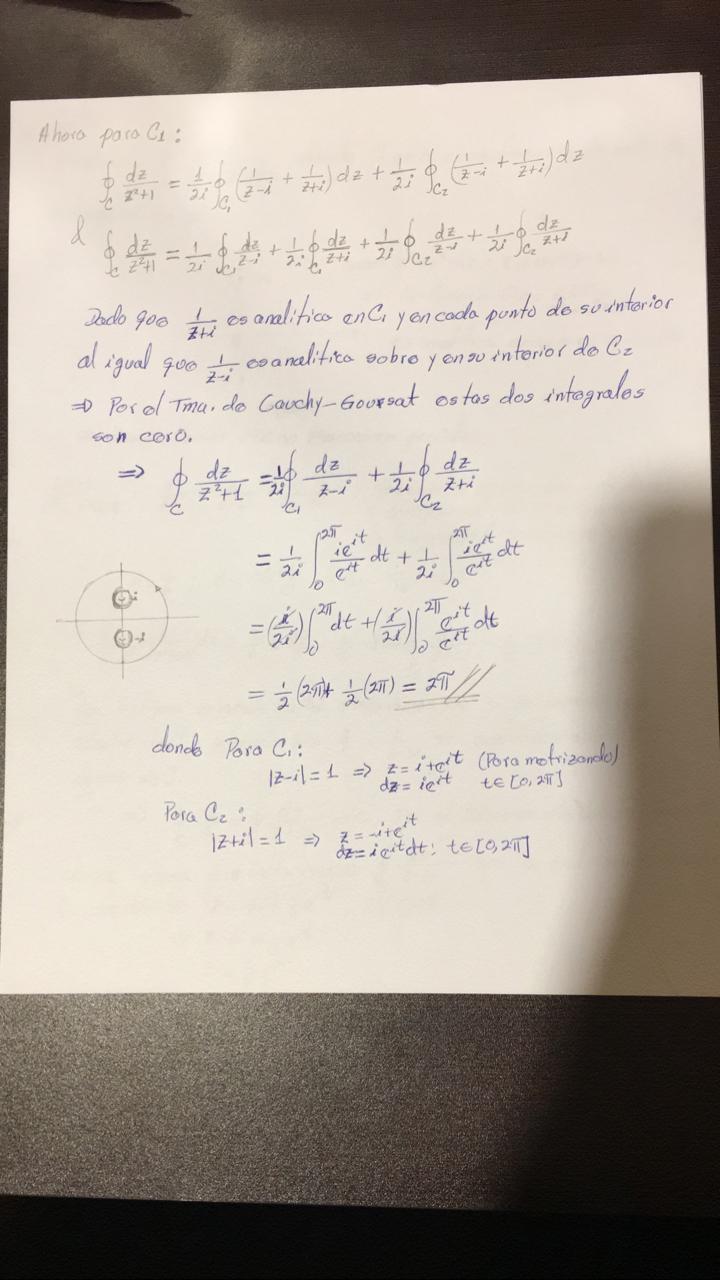 Ahora para C₁:
∮_C dz/(z²+1) = 1/(2i) ∮_C₁ (1/(z-i) + 1/(z+i)) dz + 1/(2i) ∮_C₂ (1/(z-i) + 1/(z+i)) dz
∮_C dz/(z²+1) = 1/(2i) ∮_C₁ dz/(z-i) + 1/(2i) ∮_C₁ dz/(z+i) + 1/(2i) ∮_C₂ dz/(z-i) + 1/(2i) ∮_C₂ dz/(z+i)
Dado que 1/(z+i) es analítica en C₁ y en cada punto de su interior
al igual que 1/(z-i) es analítica sobre y en su interior de C₂
⇒ Por el Tma. de Cauchy-Goursat estas dos integrales
son cero.
⇒ ∮_C dz/(z²+1) = 1/(2i) ∮_C₁ dz/(z-i) + 1/(2i) ∮_C₂ dz/(z+i)
= 1/(2i) ∫₀^{2π} ie^{it}/e^{it} dt + 1/(2i) ∫₀^{2π} ie^{it}/e^{it} dt
= (i/2i) ∫₀^{2π} dt + (i/2i) ∫₀^{2π} e^{it}/e^{it} dt
= 1/2 (2π) + 1/2 (2π) = 2π //
i
-i
donde Para C₁:
|z-i| = 1 ⇒ z = i+e^{it} (Parametrizando)
dz = ie^{it} t∈[0,2π]
Para C₂:
|z+i| = 1 ⇒ z = -i+e^{it}
dz = ie^{it}dt; t∈[0,2π]